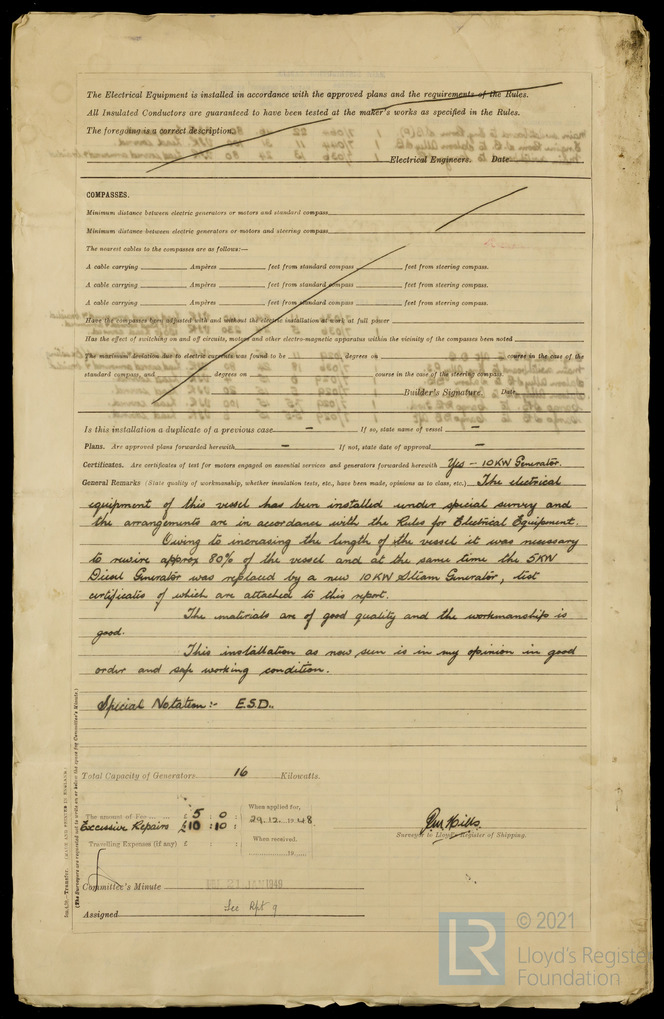 The Electrical Equipment is installed in accordance with the approved plans and the requirements of the Rules.
All Insulated Conductors are guaranteed to have been tested at the maker's works as specified in the Rules.
The foregoing is a correct description.
Electrical Engineers. Date
COMPASSES.
Minimum distance between electric generators or motors and standard compass
Minimum distance between electric generators or motors and steering compass
The nearest cables to the compasses are as follows:—
A cable carrying Ampères feet from standard compass feet from steering compass.
A cable carrying Ampères feet from standard compass feet from steering compass.
A cable carrying Ampères feet from standard compass feet from steering compass.
Have the compasses been adjusted with and without the electric installation at work at full power
Has the effect of switching on and off circuits, motors and other electro-magnetic apparatus within the vicinity of the compasses been noted
The maximum deviation due to electric currents was found to be degrees on course in the case of the
standard compass, and degrees on course in the case of the steering compass.
Builder's Signature. Date
Is this installation a duplicate of a previous case – If so, state name of vessel –
Plans. Are approved plans forwarded herewith – If not, state date of approval –
Certificates. Are certificates of test for motors engaged on essential services and generators forwarded herewith Yes – 10KW Generator.
General Remarks (State quality of workmanship, whether insulation tests, etc., have been made, opinions as to class, etc.) The electrical
equipment of this vessel has been installed under special survey and
the arrangements are in accordance with the Rules for Electrical Equipment.
Owing to increasing the length of the vessel it was necessary
to rewire approx 80% of the vessel and at the same time the 5KW
Diesel Generator was replaced by a new 10KW Steam Generator, test
certificates of which are attached to this report.
The materials are of good quality and the workmanship is
good.
This installation as now seen is in my opinion in good
order and safe working condition.
Special Notation:- E.S.D..
Total Capacity of Generators 16 Kilowatts.
The amount of Fee £ 5 : 0 :
Excessive Repairs £10 : 10 :
Travelling Expenses (if any) £ : :
When applied for,
29.12.1948
When received,
19
Surveyor to Lloyd's Register of Shipping.
Committee's Minute FRI. 21 JAN 1949
Assigned See Rpt 9
(The Surveyors are requested not to write on or below the space for Committee's Minute.)
LR
© 2021
Lloyd's Register
Foundation